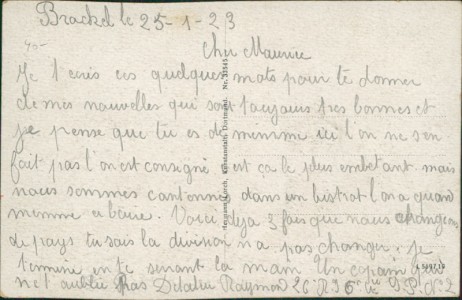 Brackel le 25-1-23
Cher Maurice
Je t'ecris ces quelques mots pour te donner
de mes nouvelles qui sont toujours tres bonnes et
je pense que tu es de mimme ici l'on ne s'en
fait pas l'on est consigné est ça le plus embetant mais
nous sommes cantonné dans un bistrot l'on a quand
mimme a boire. Voici deja 3 fois que nous changeons
de pays tu sais la division n'a pas changer. je
termine en te serrant la main Un copain qui
net oublie pas Raymon
Dortmund. Nr. 31545